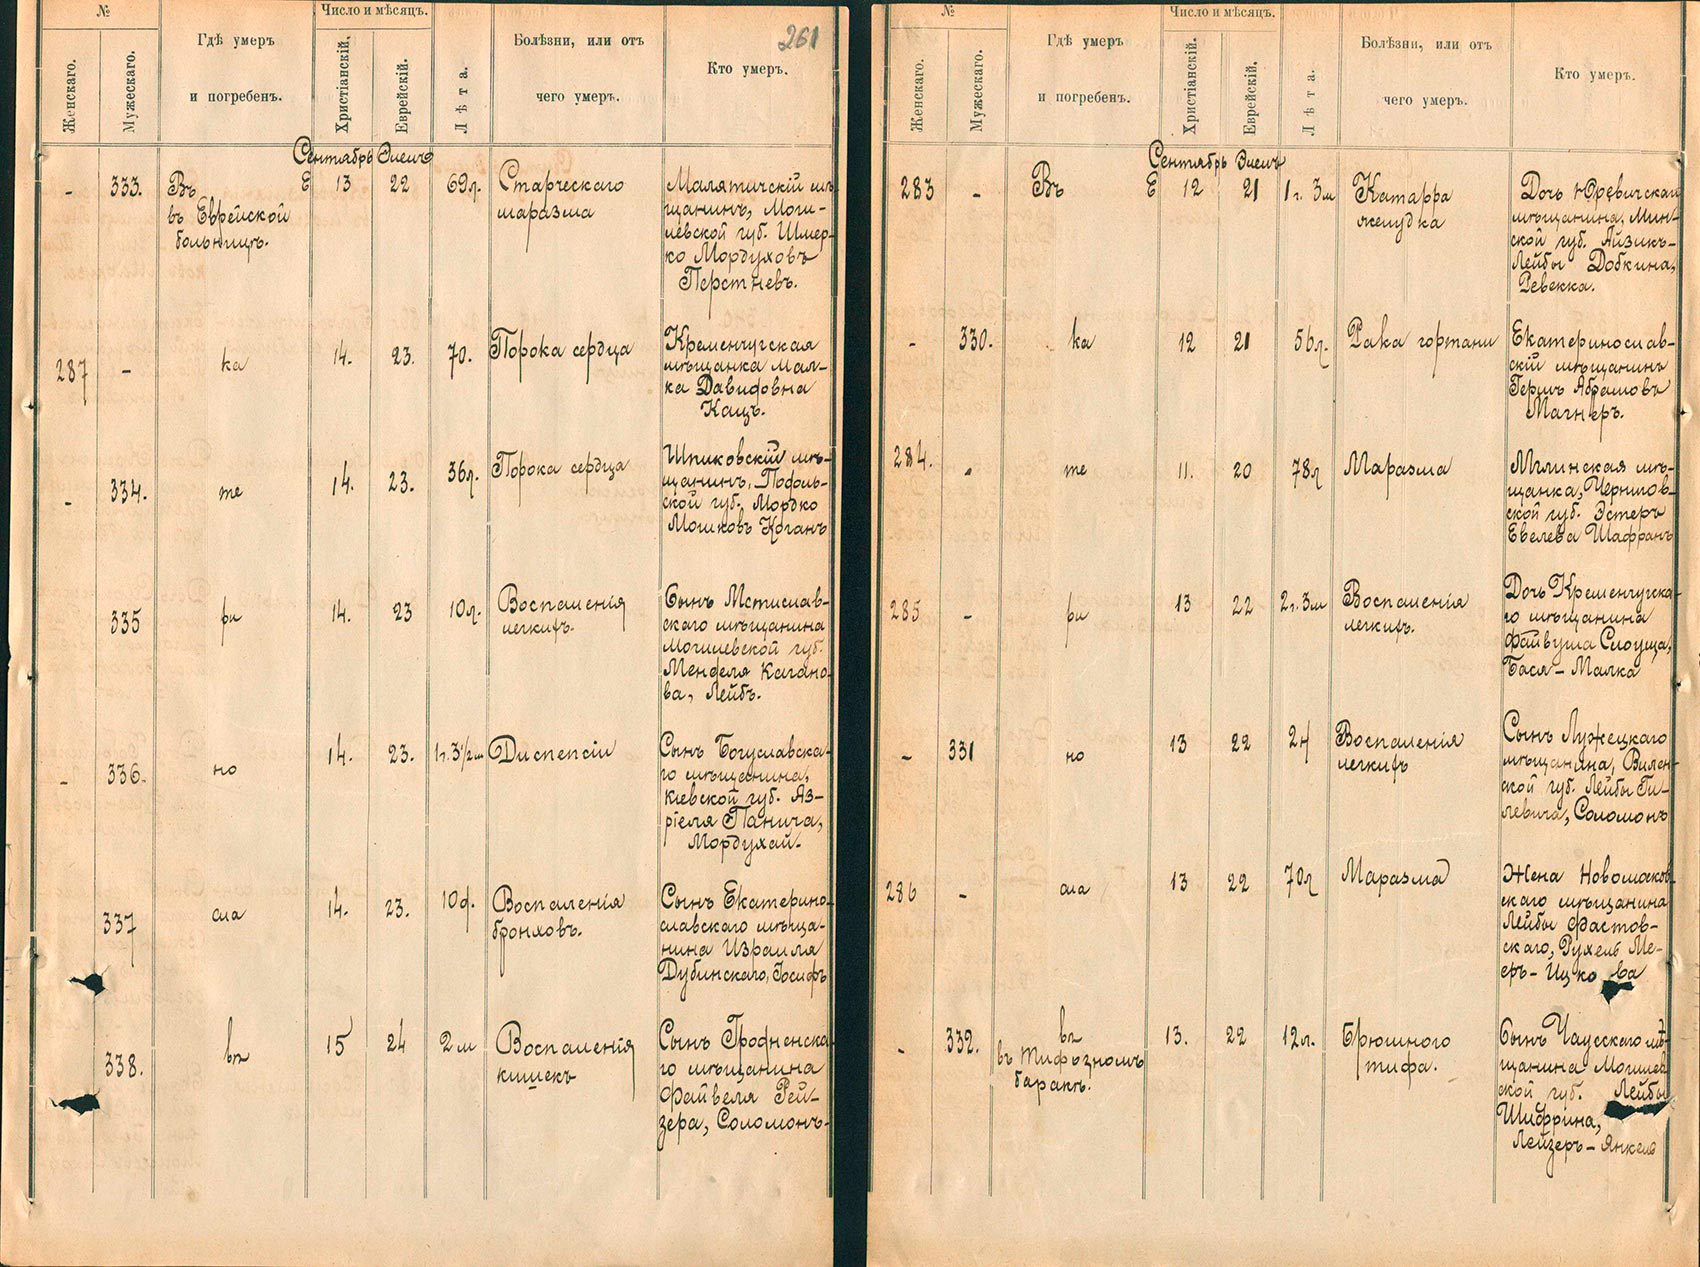 №
Число и мѣсяцъ.
261
Женскаго.
Мужескаго.
Гдѣ умеръ
и погребенъ.
Христіанскій.
Еврейскій.
Лѣта.
Болѣзни, или отъ
чего умеръ.
Кто умеръ.
Сентябрь Элелъ
- 333. Въ Е 13 22 69л. Старческаго
маразма
въ Еврейской
больницѣ.
Малятичскій мѣ-
щанинъ, Моги-
левской губ. Шмер-
ко Мордуховъ
Перстневъ.
287 - ка 14. 23. 70. Порока сердца
Кременчугская
мѣщанка Мал-
ка Давидовна
Кацъ.
- 334. те 14. 23. 36л. Порока сердца
Шпиковскій мѣ-
щанинъ, Подоль-
ской губ. Мордко
Мошковъ Коганъ
335 ри 14. 23 10л. Воспаленія
легкихъ.
Сынъ Мстислав-
скаго мѣщанина
Могилевской губ.
Менделя Кагано-
ва, Лейбъ.
- 336. но 14. 23. 1г. 3½м Диспепсіи
Сынъ Богуславска-
го мѣщанина,
Кіевской губ. Аз-
ріеля Панича,
Мордухай.
337 сла 14. 23. 10д. Воспаленія
бронховъ.
Сынъ Екатерино-
славскаго мѣща-
нина Израиля
Дубинскаго, Іосифъ
338. въ 15 24 2м Воспаленія
кишекъ
Сынъ Гродненска-
го мѣщанина
Файвеля Рей-
зера, Соломонъ-
№
Число и мѣсяцъ.
Женскаго.
Мужескаго.
Гдѣ умеръ
и погребенъ.
Христіанскій.
Еврейскій.
Лѣта.
Болѣзни, или отъ
чего умеръ.
Кто умеръ.
Сентябрь Элелъ
283 - Въ Е 12 21 1г. 3м Катарра
желудка
Дочь Юревичскаго
мѣщанина, Мин-
ской губ. Айзикъ-
Лейбы Добкина,
Ревекка.
- 330. ка 12 21 56л. Рака гортани
Екатеринослав-
скій мѣщанинъ
Гершъ Абрамовъ
Магнеръ.
284. - те 11. 20 78л Маразма
Мглинская мѣ-
щанка, Чернигов-
ской губ. Эстеръ
Евелева Шафранъ
285 - ри 13 22 2г. 3м Воспаленія
легкихъ.
Дочь Кременчугска-
го мѣщанина
Файвуша Слоуща,
Бася-Малка
- 331 но 13 22 2н Воспаленія
легкихъ
Сынъ Лужецкаго
мѣщанина, Вилен-
ской губ. Лейбы Ги-
левича, Соломонъ
286 - сла 13 22 70л Маразма
Жена Новомосков-
скаго мѣщанина
Лейбы Фастов-
скаго, Рухель Ме-
еръ-Ицкова
- 332. въ 13. 22 12л. Брюшного
тифа.
въ тифозномъ
баракѣ.
Сынъ Чаусскаго мѣ-
щанина Могилев
ской губ. Лейбы
Шифрина,
Лейзеръ-Янкель